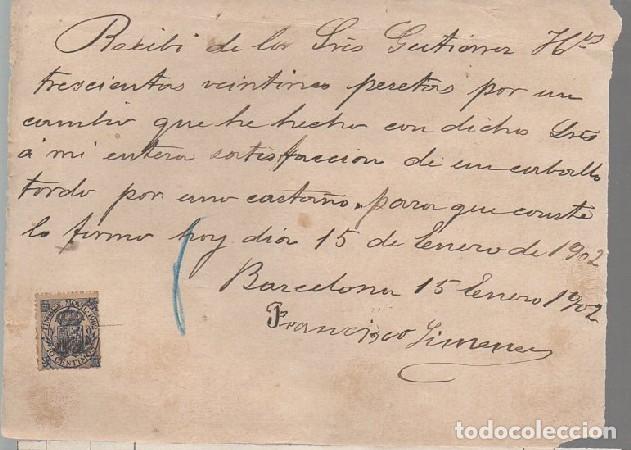 Recibi de los Srés Gutierrez Hos
trescientas veinticinco pesetas por un
cambio que he hecho con dichos Srés
á mi entera satisfaccion de un caballo
tordo por uno castaño, para que conste
lo firmo hoy dia 15 de Enero de 1902
Barcelona 15 Enero 1902
Francisco Jimenez
10 CENTIMOS
todocoleccion